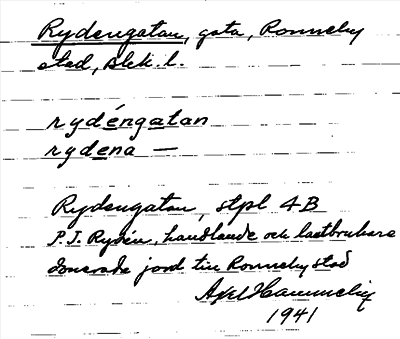 Rydengatan, gata, Ronneby
stad, Blek. l.
rydéngatan
rydena —
Rydengatan, stpl 4B
P.J. Rydén, handlande och lantbrukare
donerade jord till Ronneby stad
Axel Hammelin
1941